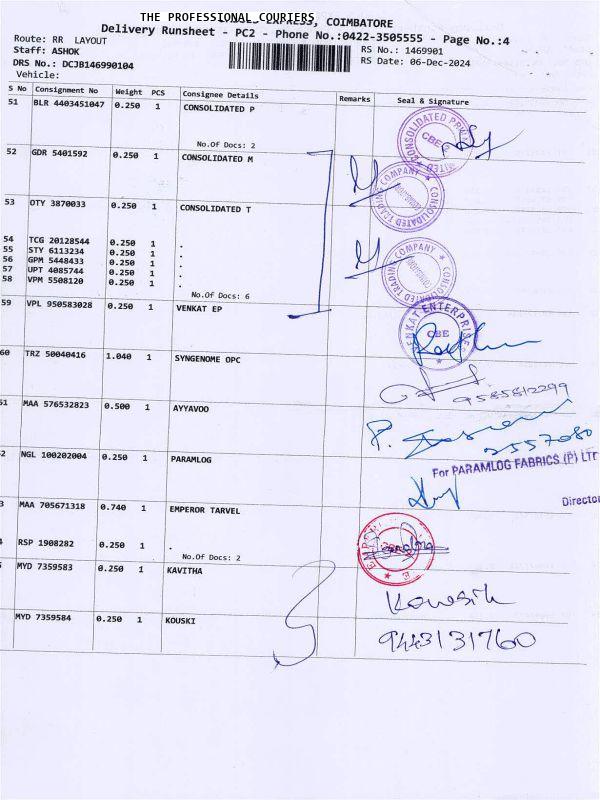 THE PROFESSIONAL COURIERS
EXPRESS, COIMBATORE
Delivery Runsheet - PC2 - Phone No.:0422-3505555 - Page No.:4
Route: RR LAYOUT
RS No.: 1469901
Staff: ASHOK
RS Date: 06-Dec-2024
DRS No.: DCJB146990104
Vehicle:
S No Consignment No Weight PCS Consignee Details Remarks Seal & Signature
51 BLR 4403451047 0.250 1 CONSOLIDATED P
No.Of Docs: 2
CBE
52 GDR 5401592 0.250 1 CONSOLIDATED M
CONSOLIDATED TRADING COMPANY
53 OTY 3870033 0.250 1 CONSOLIDATED T
54 TCG 20128544 0.250 1 .
55 STY 6113234 0.250 1 .
56 GPM 5448433 0.250 1 .
57 UPT 4085744 0.250 1 .
58 VPM 5508120 0.250 1 .
No.Of Docs: 6
CONSOLIDATED TRADING COMPANY
59 VPL 950583028 0.250 1 VENKAT EP
VENKAT ENTERPRISES
CBE
60 TRZ 50040416 1.040 1 SYNGENOME OPC
9585812299
51 MAA 576532823 0.500 1 AYYAVOO
2557080
2 NGL 100202004 0.250 1 PARAMLOG
For PARAMLOG FABRICS (P) LTD
Director
3 MAA 705671318 0.740 1 EMPEROR TARVEL
RSP 1908282 0.250 1 .
No.Of Docs: 2
MYD 7359583 0.250 1 KAVITHA
Kowsik
MYD 7359584 0.250 1 KOUSKI
9443131760